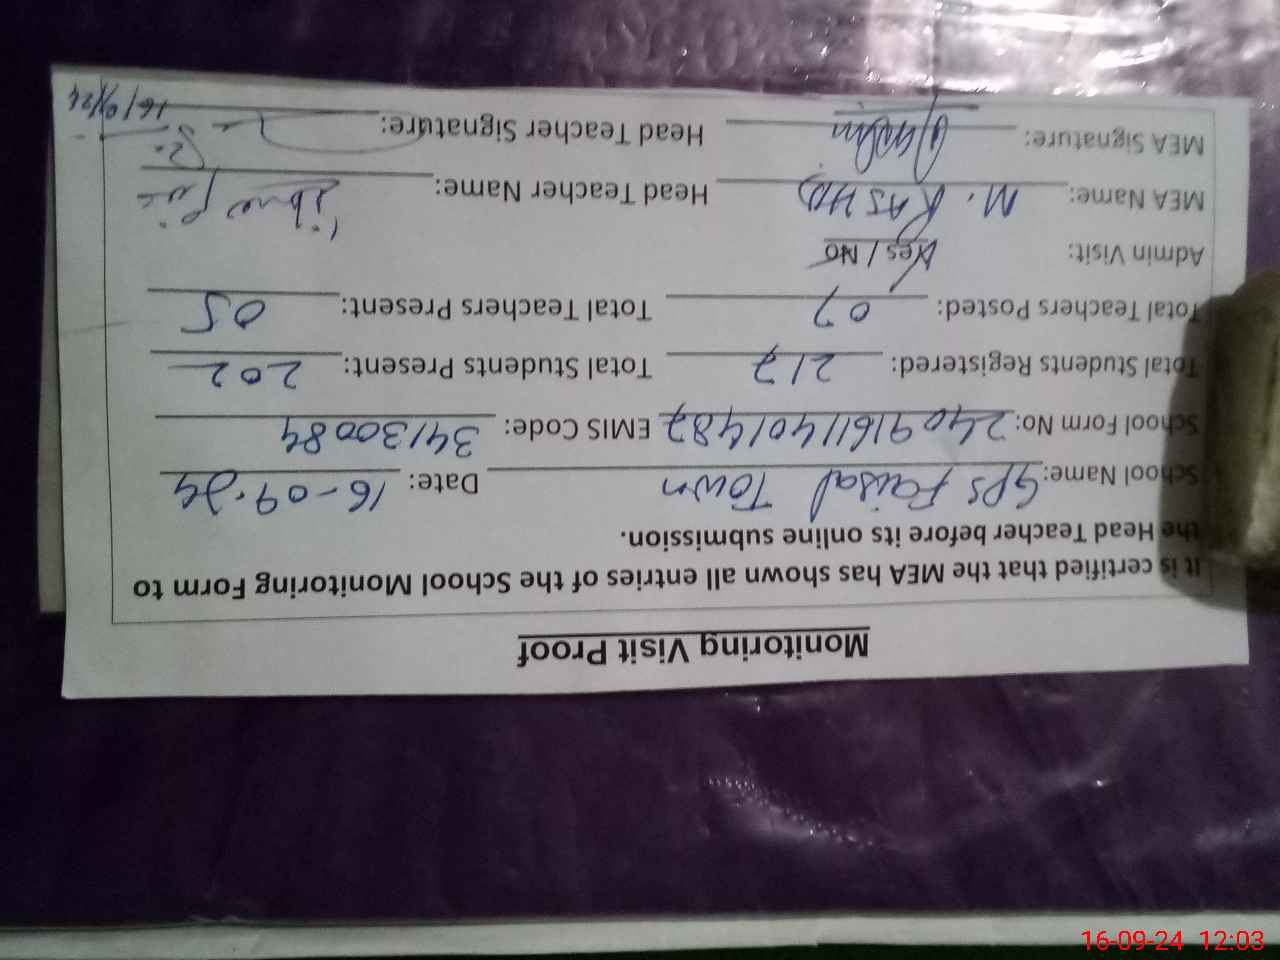 Monitoring Visit Proof
It is certified that the MEA has shown all entries of the School Monitoring Form to
the Head Teacher before its online submission.
School Name: GPS Faisal Town Date: 16-09-24
School Form No: 24091611401487 EMIS Code: 34130084
Total Students Registered: 217 Total Students Present: 202
Total Teachers Posted: 07 Total Teachers Present: 05
Admin Visit: Yes / No
MEA Name: M. RASHID Head Teacher Name:
MEA Signature: Head Teacher Signature:
16/9/24
16-09-24 12:03